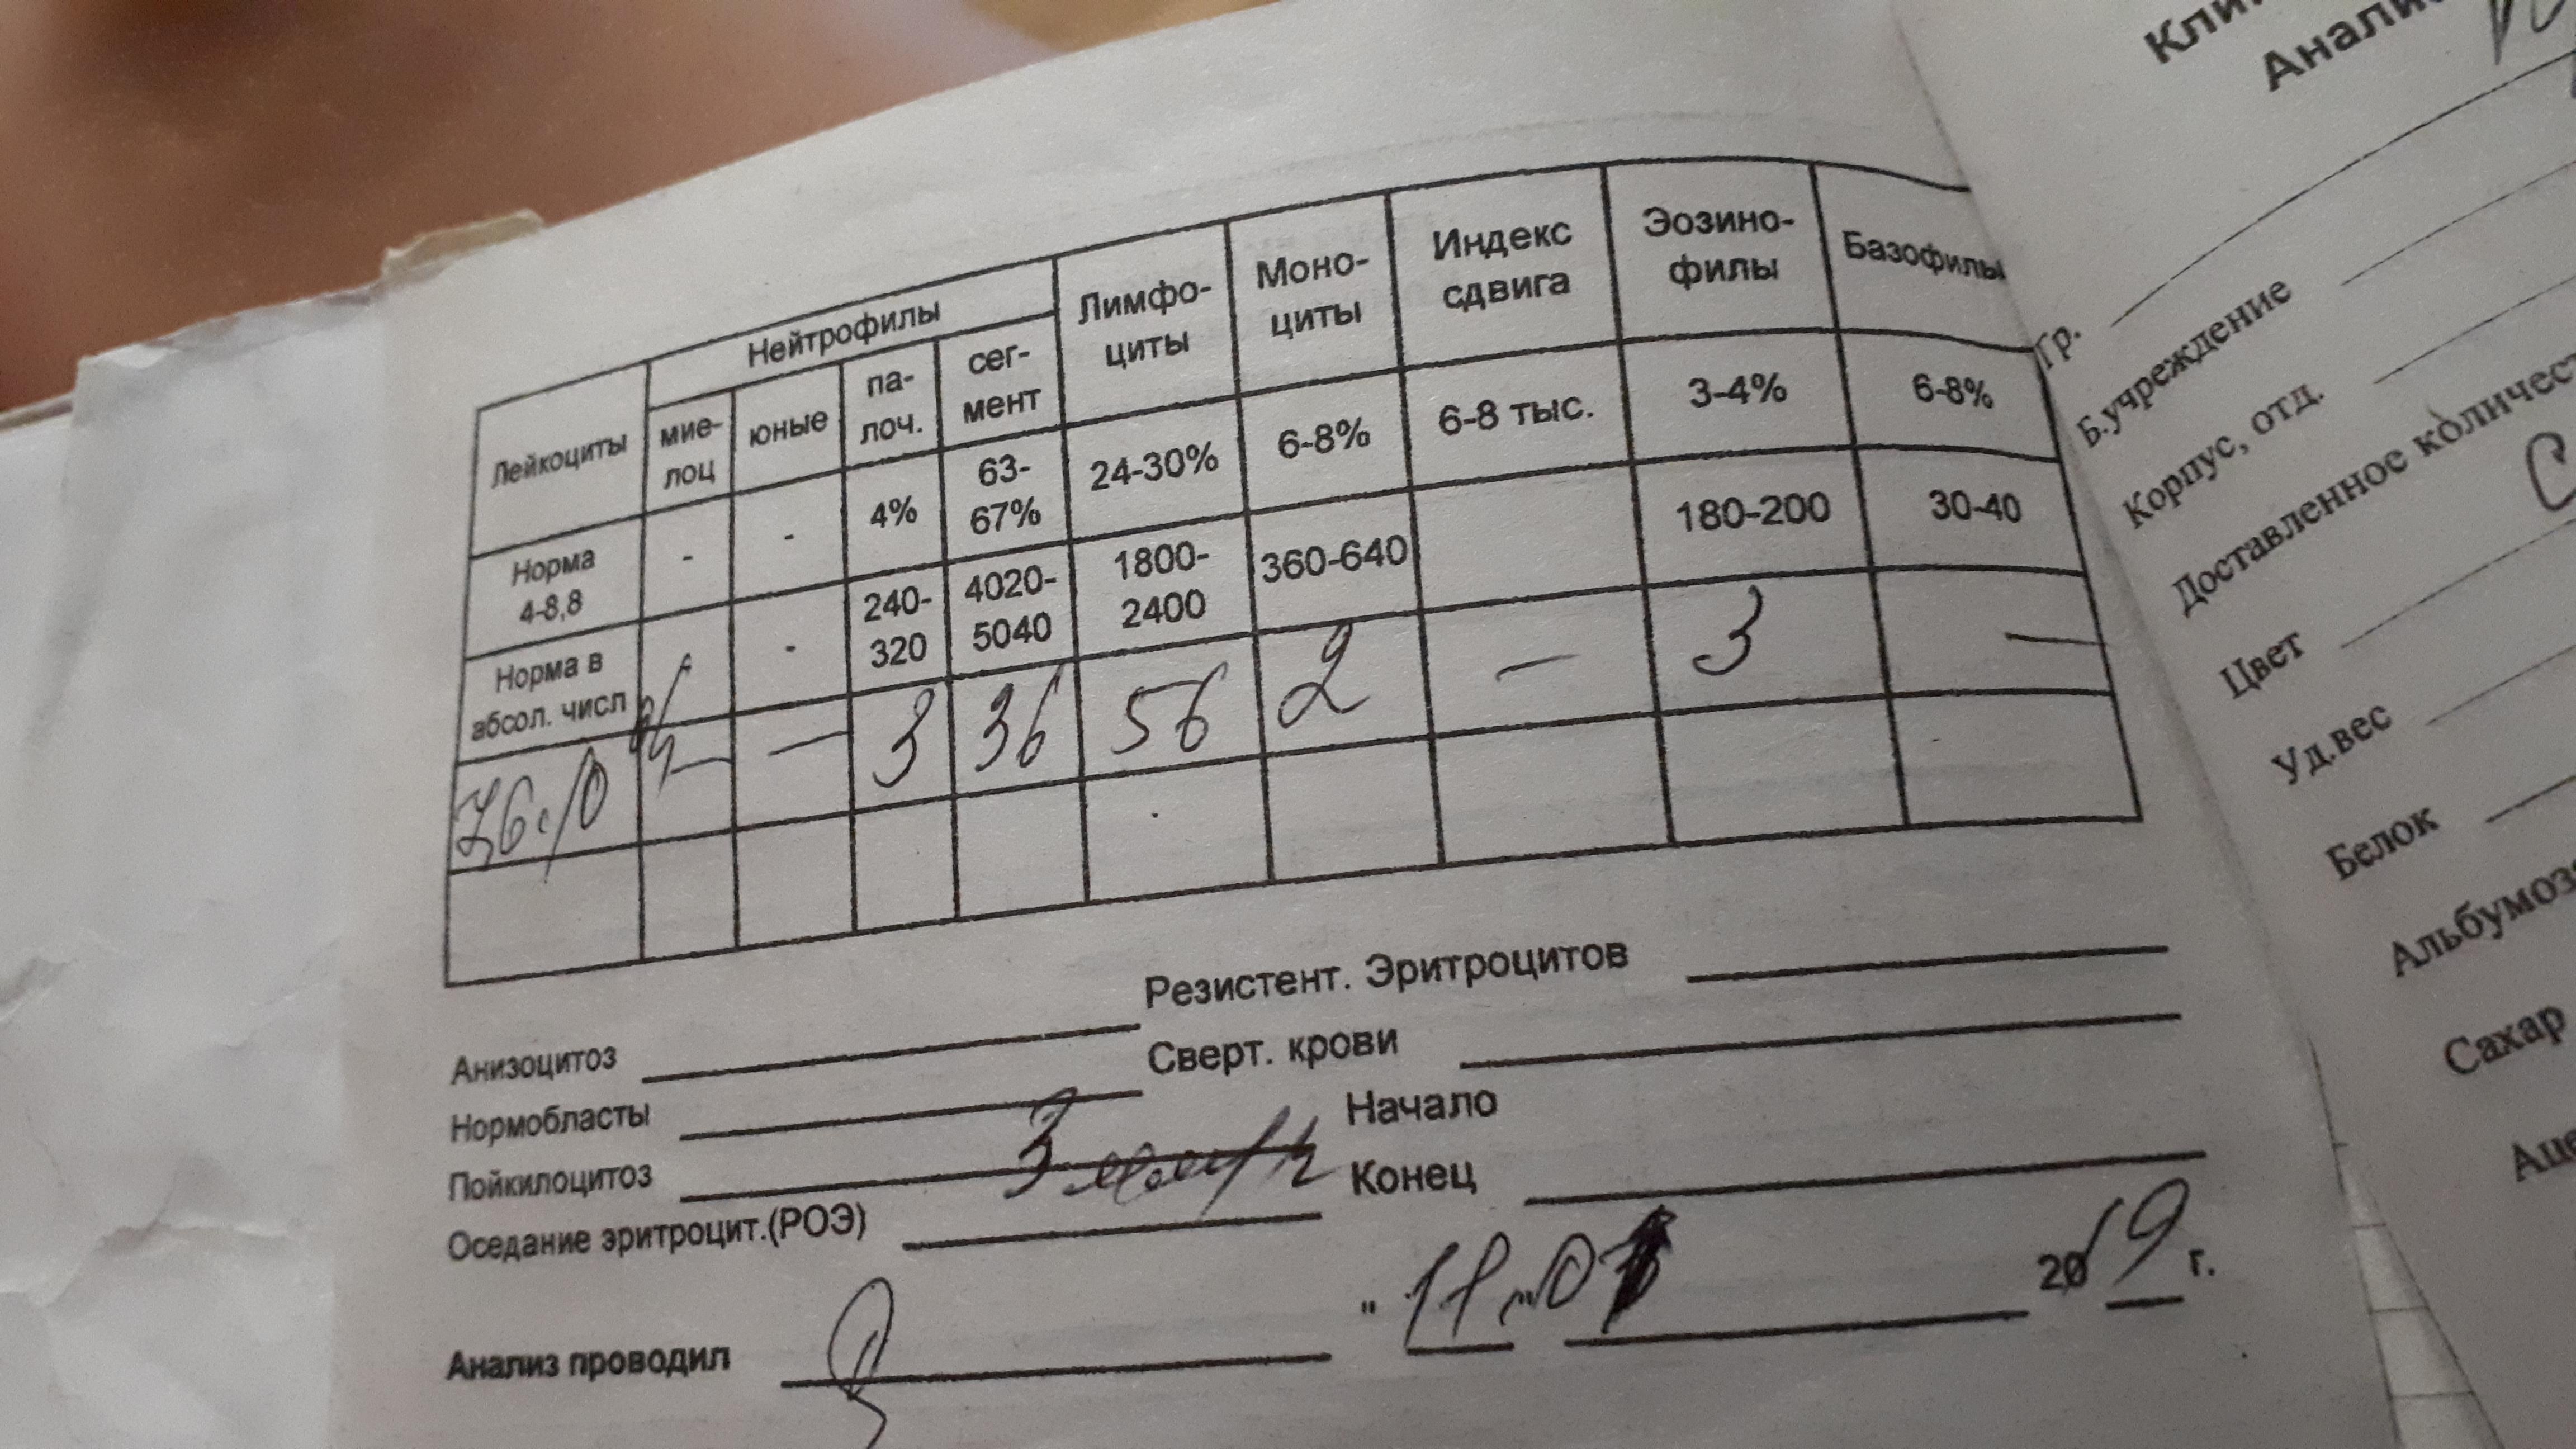 Нейтрофилы
Лейкоциты мие-лоц юные па-лоч. сег-мент Лимфо-циты Моно-циты Индекс сдвига Эозино-филы Базофилы
Норма 4-8,8 - - 4% 63-67% 24-30% 6-8% 6-8 тыс. 3-4% 6-8%
Норма в абсол. числ - 240-320 4020-5040 1800-2400 360-640 180-200 30-40
— — 3 36 56 2 — 3 —
Резистент. Эритроцитов
Анизоцитоз
Сверт. крови
Нормобласты
Начало
Пойкилоцитоз
Конец
3 мм/ч
Оседание эритроцит.(РОЭ)
Анализ проводил
" 11 " 2019 г.
Гр.
Б.учреждение
Корпус, отд.
Доставленное
Цвет
Уд.вес
Белок
Сахар